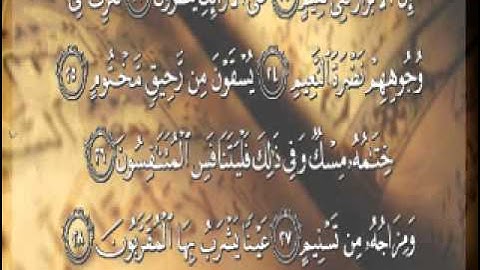 إِنَّ الْأَبْرَارَ لَفِي نَعِيمٍ ۝٢٢ عَلَى الْأَرَائِكِ يَنظُرُونَ ۝٢٣ تَعْرِفُ فِي
وُجُوهِهِمْ نَضْرَةَ النَّعِيمِ ۝٢٤ يُسْقَوْنَ مِن رَّحِيقٍ مَّخْتُومٍ ۝٢٥
خِتَٰمُهُۥ مِسْكٌ وَفِي ذَٰلِكَ فَلْيَتَنَافَسِ الْمُتَنَٰفِسُونَ ۝٢٦
وَمِزَاجُهُۥ مِن تَسْنِيمٍ ۝٢٧ عَيْنًا يَشْرَبُ بِهَا الْمُقَرَّبُونَ ۝٢٨